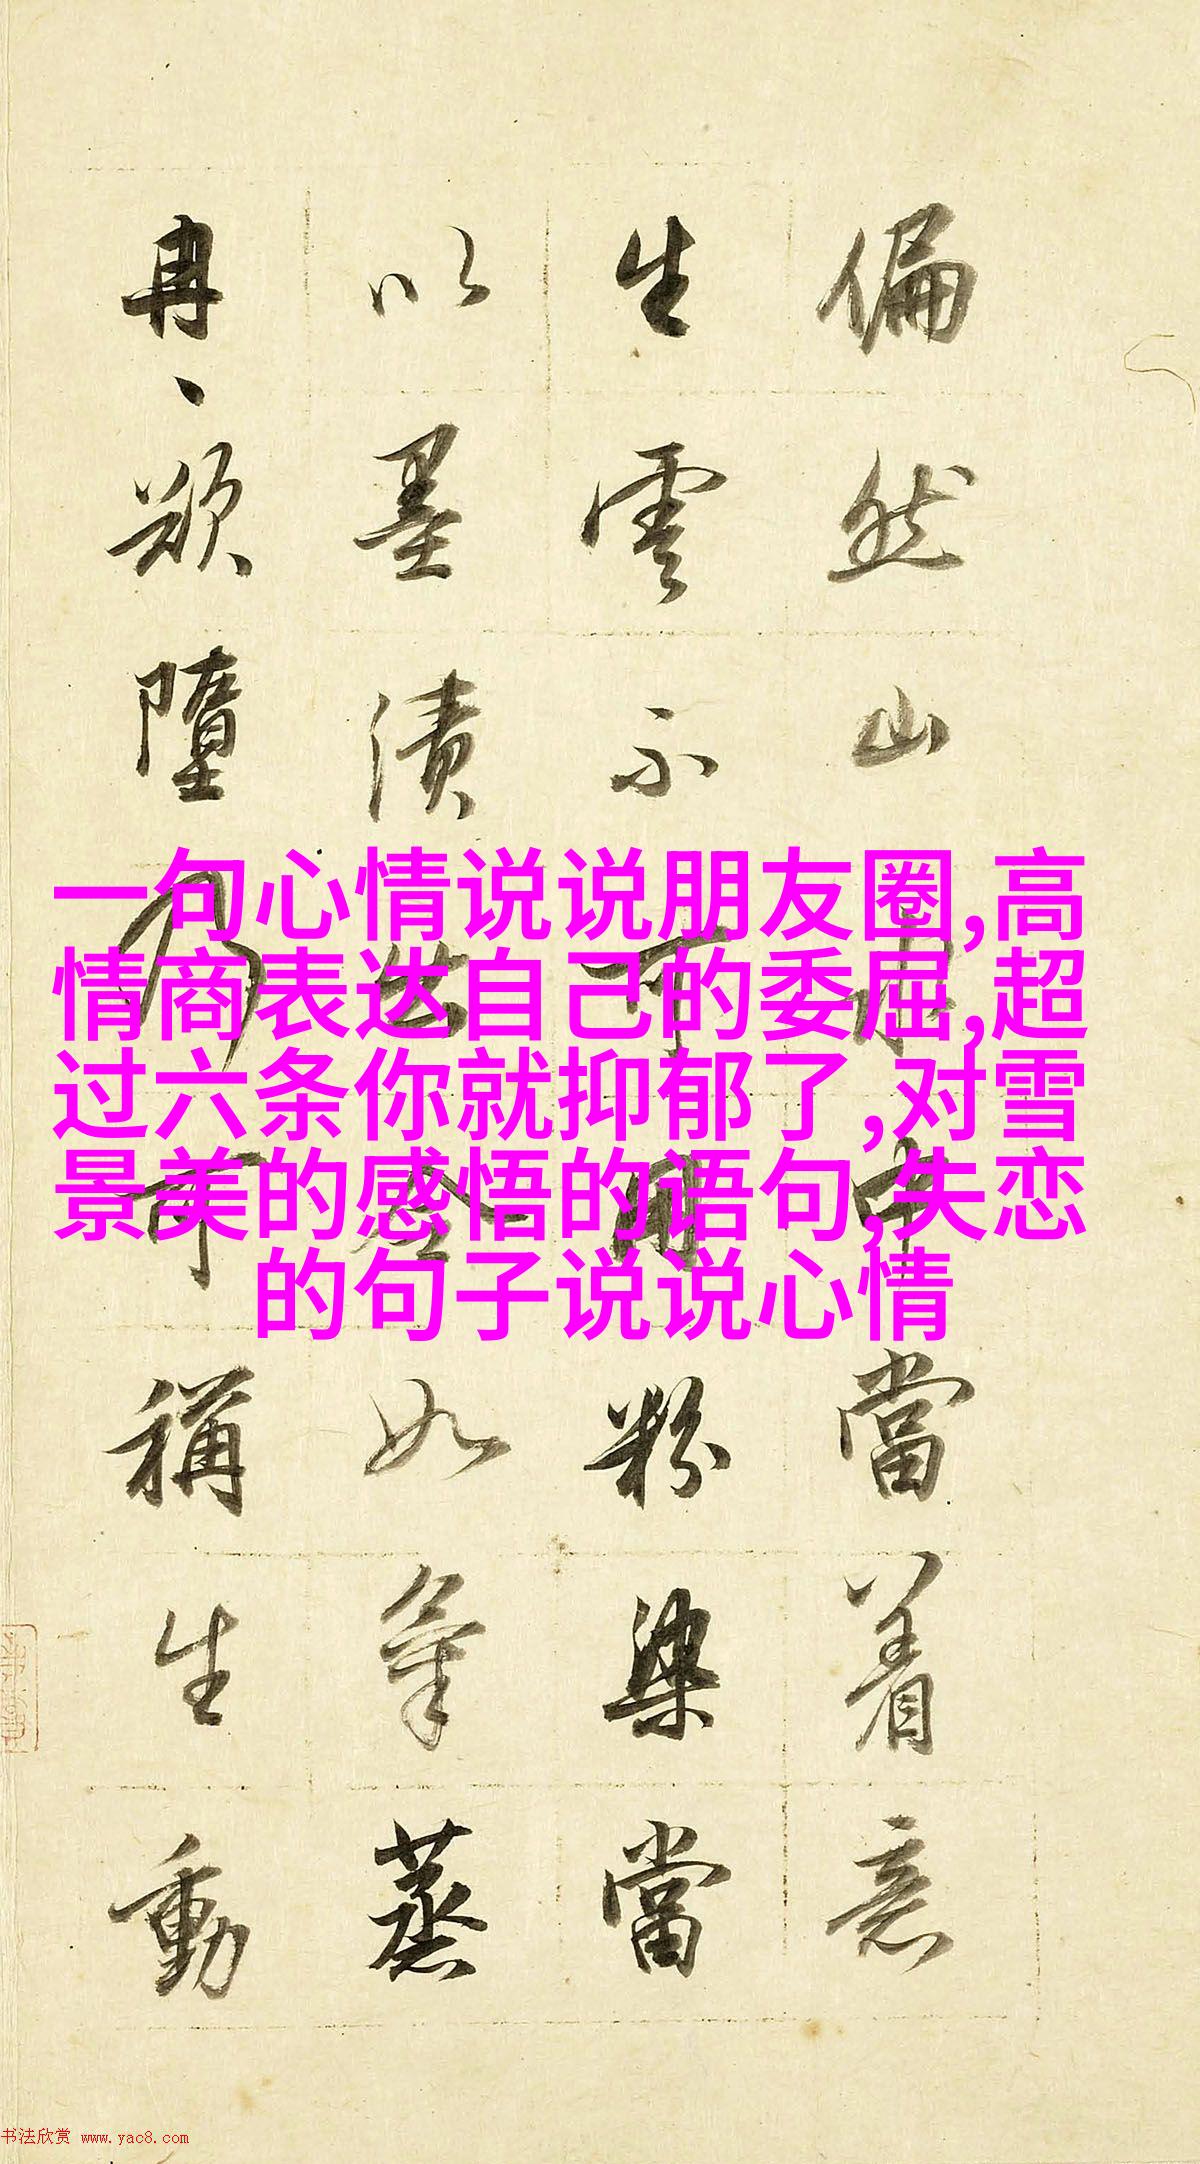 偏然山水中當着意
生雲不可用粉染當
以墨漬出令如氣蒸
冉、欲墮乃可稱生動
一句心情说说朋友圈,高
情商表达自己的委屈,超
过六条你就抑郁了,对雪
景美的感悟的语句,失恋
的句子说说心情
书法欣赏 www.yac8.com